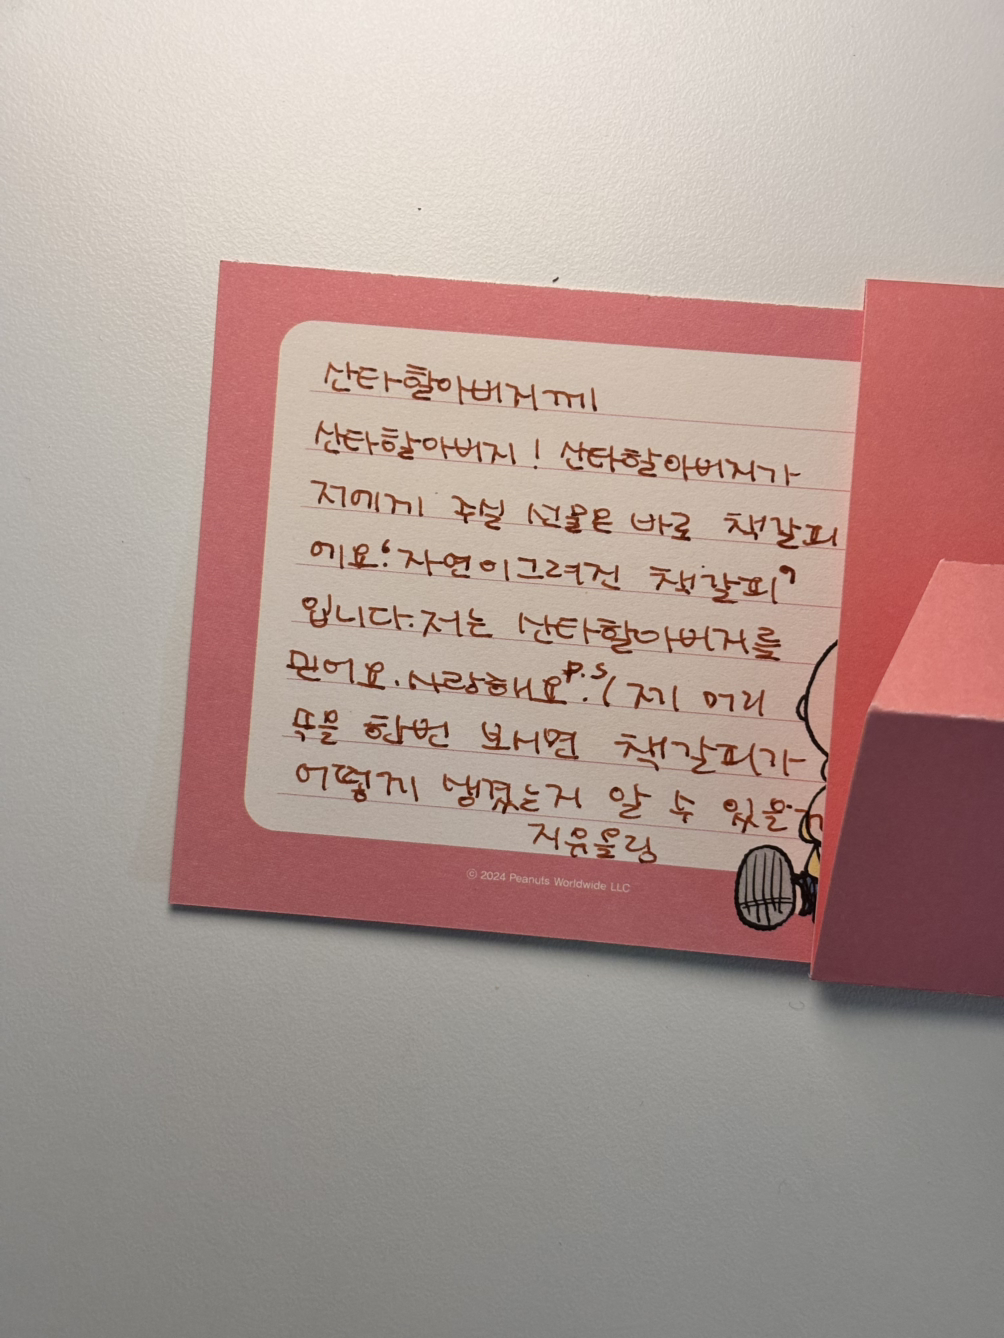 산타할아버지께
산타할아버지! 산타할아버지가
저에게 주실 선물은 바로 책갈피
에요‘자연이그려진 책갈피’
입니다.저는 산타할아버지를
믿어요.사랑해요.P.S( 제 머리
속을 한번 보시면 책갈피가
어떻게 생겼는지 알 수 있을
지유올림
© 2024 Peanuts Worldwide LLC